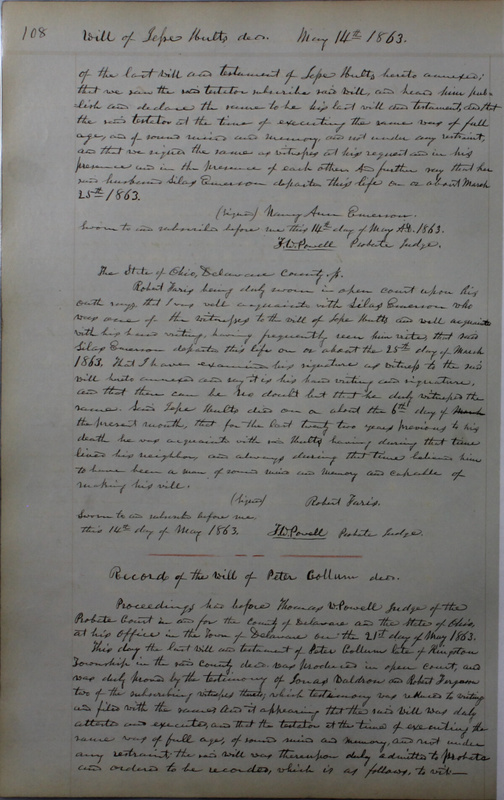 108 Will of Jesse Hults decd. May 14th 1863.
of the last will and testament of Jesse Hults hereto annexed;
that we saw the said testator subscribe said will, and heard him pub-
lish and declare the same to be his last will and testament, and that
the said testator at the time of executing the same was of full
age, and of sound mind and memory, and not under any restraint,
and that we signed the same as witnesses at his request and in his
presence and in the presence of each other. And further say that her
said husband Silas Emerson departed this life on or about March
25th 1863.
(Signed) Nancy Ann Emerson.
Sworn to and subscribed before me this 14th day of May AD. 1863.
T.W. Powell Probate Judge.
The State of Ohio, Delaware County, ss.
Robert Faris being duly sworn in open court upon his
oath says that I was well acquainted with Silas Emerson who
was one of the witnesses to the will of Jesse Hults and well acquainted
with his hand writing, having frequently seen him write, that said
Silas Emerson departed this life on or about the 25th day of March
1863. That I have examined his signature as witness to the said
will hereto annexed and say it is his hand writing and signature,
and that there can be no doubt but that he duly witnessed the
same. Said Jesse Hults died on or about the 6th day of March
the present month, that for the last twenty two years previous to his
death he was acquainted with said Hults having during that time
lived his neighbor and always during that time believed him
to have been a man of sound mind and memory and capable of
making his will.
(Signed) Robert Faris.
Sworn to and subscribed before me
this 14th day of May 1863. T.W. Powell Probate Judge.
Record of the Will of Peter Collum decd.
Proceedings had before Thomas W. Powell Judge of the
Probate Court in and for the County of Delaware and the State of Ohio,
at his Office in the Town of Delaware on the 21st day of May 1863.
This day the last Will and testament of Peter Collum late of Kingston
Township in the said County decd was produced in open court, and
was duly proved by the testimony of Jonas Waldron and Robert Ferguson
two of the subscribing witnesses thereto, which testimony was reduced to writing
and filed with the same. And it appearing that the said will was duly
attested and executed, and that the testator at the time of executing the
same was of full age, of sound mind and memory, and not under
any restraint the said will was thereupon duly admitted to Probate
and ordered to be recorded, which is as follows, to wit—